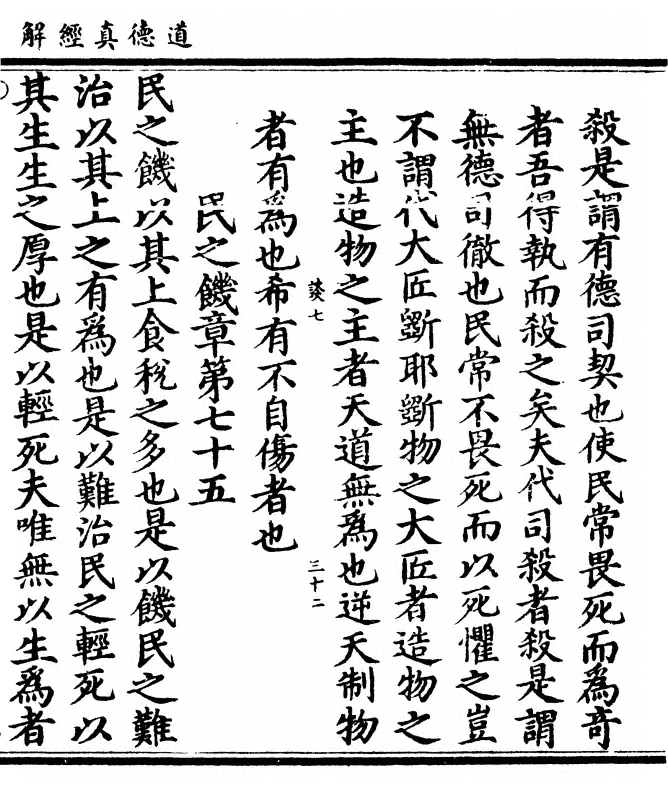 道德真經解
殺是謂有德司契也使民常畏死而為竒
者吾得執而殺之矣夫代司殺者殺是謂
無德司徹也民常不畏死而以死懼之豈
不謂代大匠斲耶斲物之大匠者造物之
主也造物之主者天道無爲也逆天制物
談七
三十二
者有爲也希有不自傷者也
民之饑章第七十五
民之饑以其上食稅之多也是以饑民之難
治以其上之有爲也是以難治民之輕死以
其生生之厚也是以輕死夫唯無以生爲者